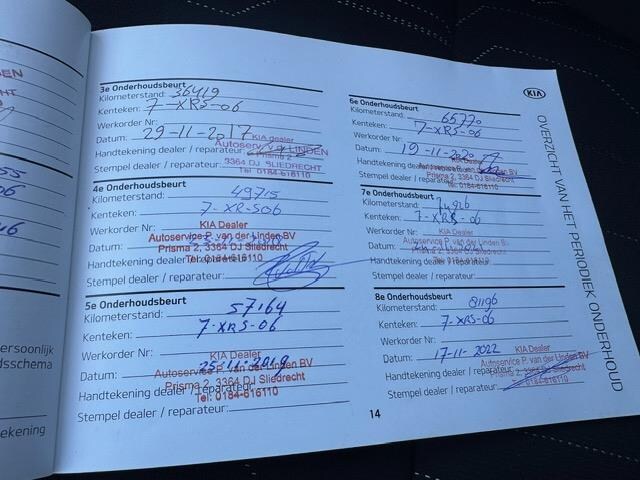 3e Onderhoudsbeurt
Kilometerstand: 36419
Kenteken: 7-XRS-06
Werkorder Nr:
Datum: 29-11-2017 KIA dealer
Autoserv. v.d. LINDEN
Handtekening dealer / reparateur: Prisma 2
Stempel dealer / reparateur: 3364 DJ SLIEDRECHT
Tel. 0184-616110
4e Onderhoudsbeurt
Kilometerstand: 49715
Kenteken: 7-XR-S06
Werkorder Nr: KIA Dealer
Autoservice P. van der Linden BV
Datum: Prisma 2, 3364 DJ Sliedrecht
Handtekening dealer Tel: 0184-616110
Stempel dealer / reparateur:
5e Onderhoudsbeurt
Kilometerstand: 57164
Kenteken: 7-XRS-06
Werkorder Nr: KIA Dealer
Datum: 25-11-2019
Autoservice P. van der Linden BV
Prisma 2, 3364 DJ Sliedrecht
Handtekening dealer / reparateur:
Tel: 0184-616110
Stempel dealer / reparateur:
KIA
6e Onderhoudsbeurt
Kilometerstand: 65770
Kenteken: 7-XRS-06
Werkorder Nr:
Datum: 19-11-2020
KIA Dealer
Handtekening dealer
Autoservice P. van der Linden BV
Stempel dealer / reparateur: Prisma 2, 3364 DJ Sliedrecht
Tel: 0184-616110
7e Onderhoudsbeurt
Kilometerstand:
Kenteken: 7-XRS-06
Werkorder Nr: KIA Dealer
Autoservice P. van der Linden BV
Datum:
Handtekening dealer
Stempel dealer / reparateur:
8e Onderhoudsbeurt
Kilometerstand: 81196
Kenteken: 7-XRS-06
Werkorder Nr:
Datum: 17-11-2022 KIA Dealer
Autoservice P. van der Linden BV
Handtekening dealer / reparateur: Prisma 2, 3364 DJ Sliedrecht
Stempel dealer / reparateur: 0184-616110
14
OVERZICHT VAN HET PERIODIEK ONDERHOUD
ersoonlijk
dsschema
ekening